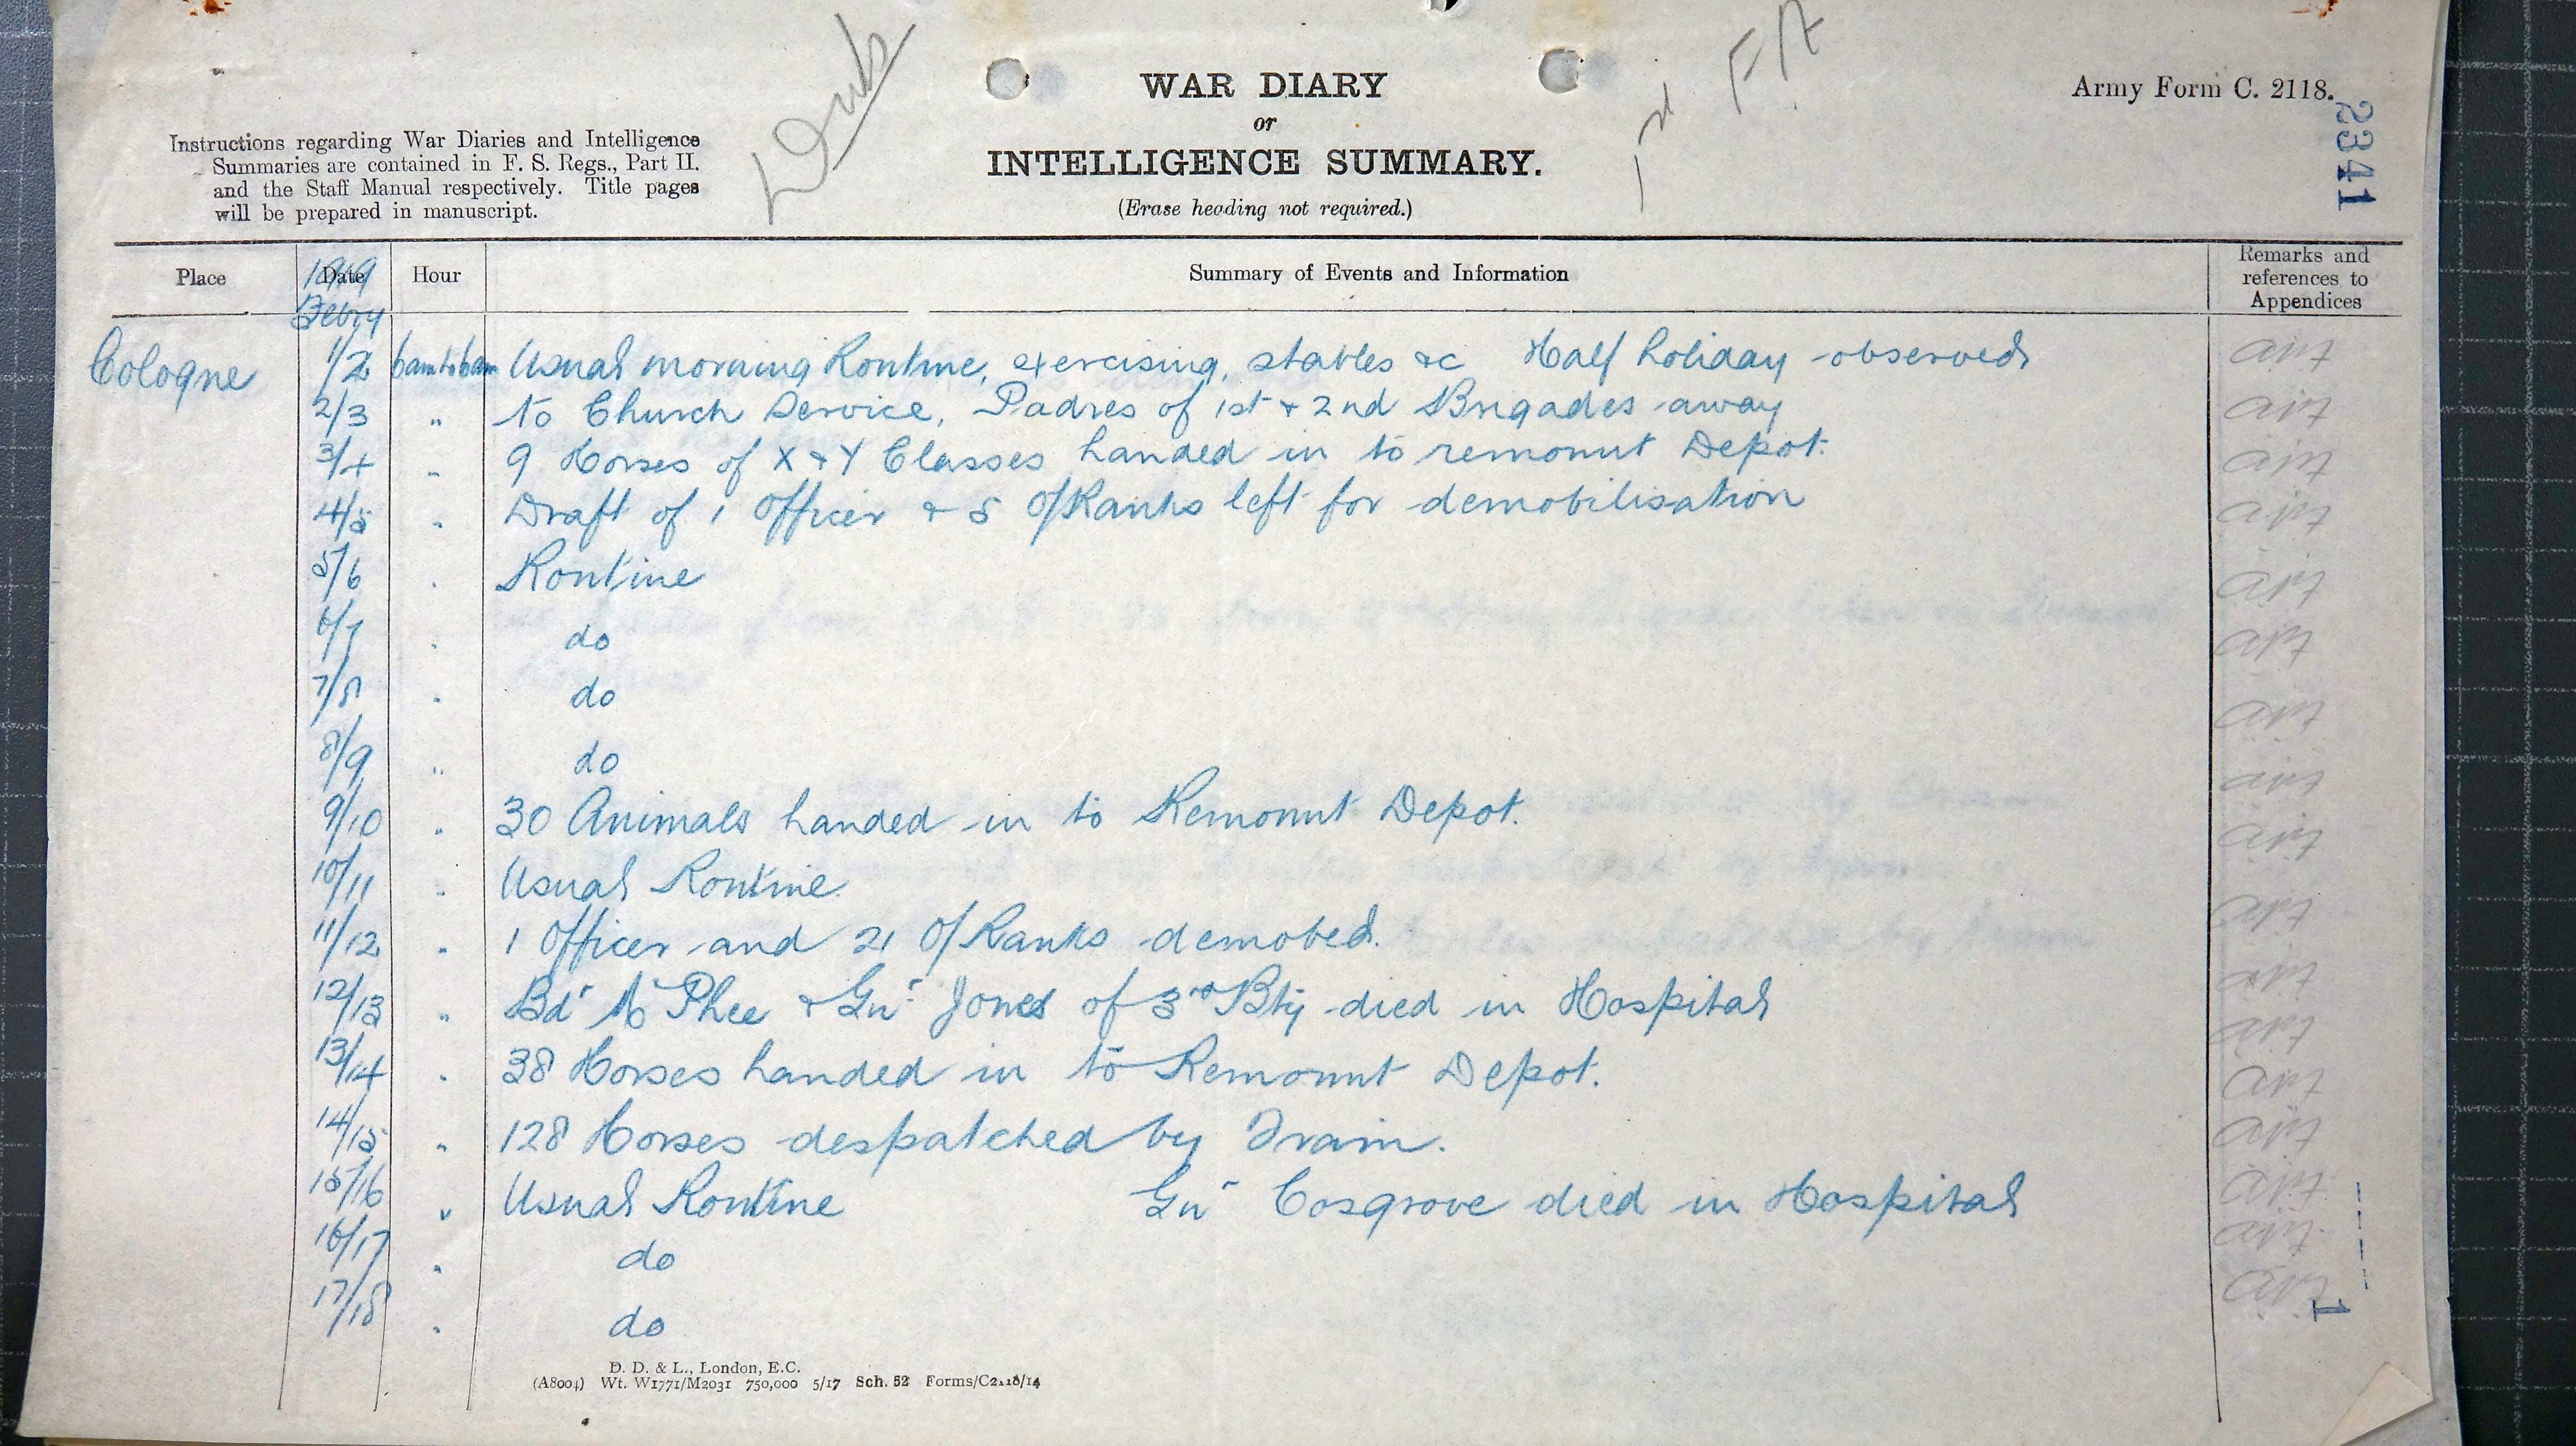 WAR DIARY
or
INTELLIGENCE SUMMARY.
(Erase heading not required.)
Army Form C. 2118.
2341
Instructions regarding War Diaries and Intelligence
Summaries are contained in F. S. Regs., Part II.
and the Staff Manual respectively. Title pages
will be prepared in manuscript.
Place Date Hour Summary of Events and Information Remarks and references to Appendices
1919
Febry
Cologne 1/2 6am to 6am Usual morning Routine, exercising, stables &c Half holiday observed
2/3 " to Church Service, Padres of 1st & 2nd Brigades away
3/4 " 9 Horses of X & Y Classes handed in to remount Depot.
4/5 " Draft of 1 Officer & 5 O/Ranks left for demobilisation
5/6 " Routine
6/7 " do
7/8 " do
8/9 " do
9/10 " 30 Animals handed in to Remount Depot.
10/11 " Usual Routine.
11/12 " 1 Officer and 21 O/Ranks demobed.
12/13 " Bdr McPhee & Gnr Jones of 3rd Bty died in Hospital
13/14 " 38 Horses handed in to Remount Depot.
14/15 " 128 Horses despatched by Train.
15/16 " Usual Routine Gnr Cosgrove died in Hospital
16/17 " do
17/18 " do
1
D. D. & L., London, E.C.
(A8004) Wt. W1771/M2031 750,000 5/17 Sch. 52 Forms/C2118/14